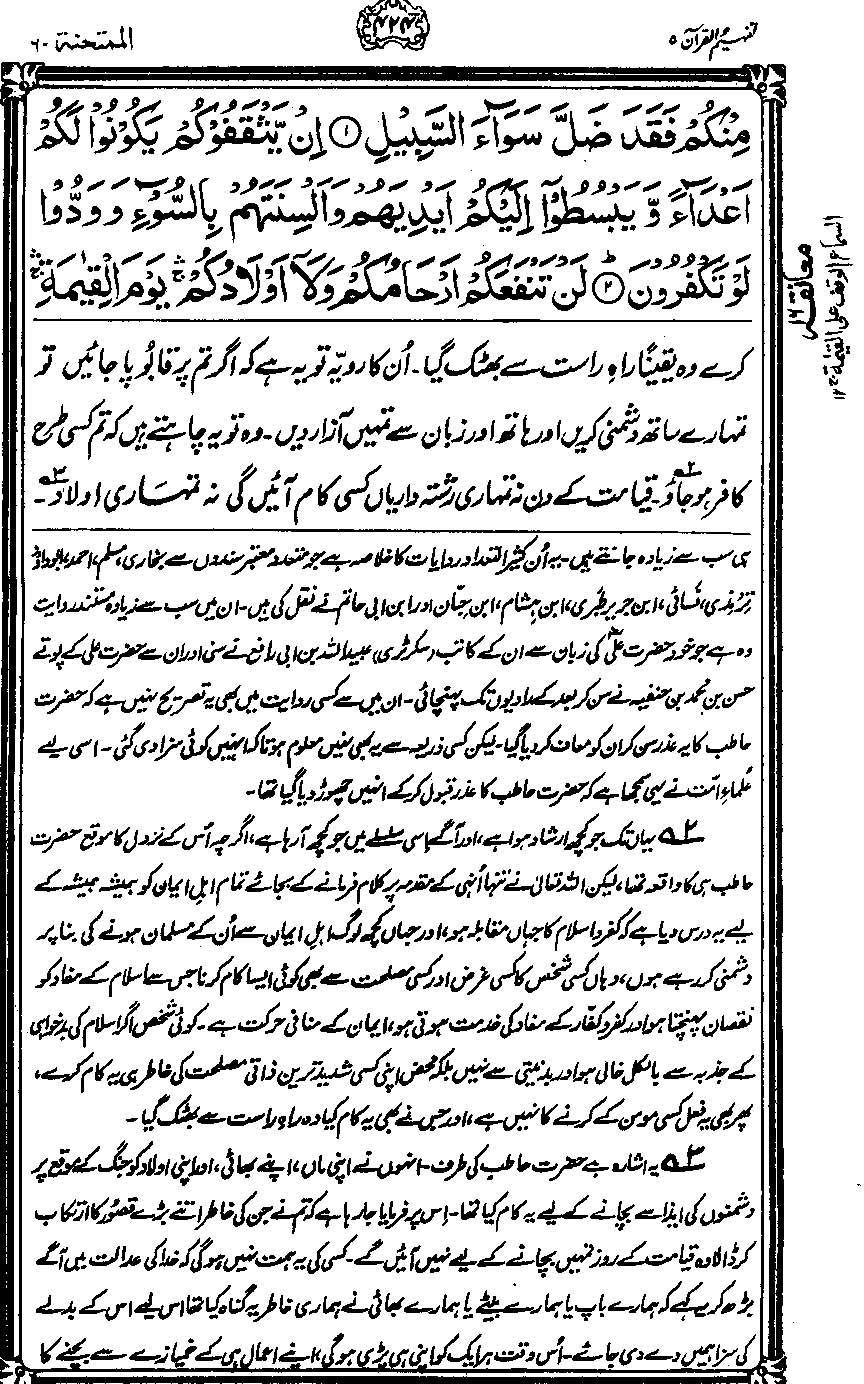 تفہیم القرآن ۵
۴۲۴
الممتحنة ۶۰
مِنْكُمْ فَقَدْ ضَلَّ سَوَآءَ السَّبِيْلِ ① اِنْ يَّثْقَفُوْكُمْ يَكُوْنُوْا لَكُمْ
اَعْدَآءً وَّ يَبْسُطُوْٓا اِلَيْكُمْ اَيْدِيَهُمْ وَاَلْسِنَتَهُمْ بِالسُّوْٓءِ وَ وَدُّوْا
لَوْ تَكْفُرُوْنَ ② لَنْ تَنْفَعَكُمْ اَرْحَامُكُمْ وَلَآ اَوْلَادُكُمْ ۛ يَوْمَ الْقِيٰمَةِ ۛ
معانقہ
السماع الوقف على القيٰمة ۱۲
کرے وہ یقیناً راہِ راست سے بھٹک گیا۔ اُن کا رویّہ تو یہ ہے کہ اگر تم پر قابُو پا جائیں تو
تمہارے ساتھ دشمنی کریں اور ہاتھ اور زبان سے تمہیں آزار دیں۔ وہ تو یہ چاہتے ہیں کہ تم کسی طرح
کافر ہو جاؤ۔۲ قیامت کے دن نہ تمہاری رشتہ داریاں کسی کام آئیں گی نہ تمہاری اولاد۔۳
ہی سب سے زیادہ جانتے ہیں۔ یہ اُن کثیر التعداد روایات کا خلاصہ ہے جو متعدد معتبر سندوں سے بخاری، مسلم، احمد، ابوداؤد،
ترمذی، نسائی، ابن جریر طبری، ابن ہشام، ابن حِبّان اور ابن ابی حاتم نے نقل کی ہیں۔ ان میں سب سے زیادہ مستند روایت
وہ ہے جو خود حضرت علیؓ کی زبان سے ان کے کاتب (سکرٹری) عبیداللہ بن ابی رافع نے سنی اور ان سے حضرت علی کے پوتے
حسن بن محمد بن حنفیہ نے سن کر بعد کے راویوں تک پہنچائی۔ ان میں سے کسی روایت میں بھی یہ تصریح نہیں ہے کہ حضرت
حاطب کا یہ عذر سن کر ان کو معاف کر دیا گیا۔ لیکن کسی ذریعہ سے یہ بھی نہیں معلوم ہوتا کہ انہیں کوئی سزا دی گئی۔ اسی لیے
علماءِ امت نے یہی سمجھا ہے کہ حضرت حاطب کا عذر قبول کر کے انہیں چھوڑ دیا گیا تھا۔
۲ یہاں تک جو کچھ ارشاد ہوا ہے، اور آگے اِسی سلسلے میں جو کچھ آ رہا ہے، اگرچہ اُس کے نزول کا موقع حضرت
حاطب ہی کا واقعہ تھا، لیکن اللہ تعالیٰ نے تنہا اُنہی کے مقدمہ پر کلام فرمانے کے بجائے تمام اہلِ ایمان کو ہمیشہ ہمیشہ کے
لیے یہ درس دیا ہے کہ کفر و اسلام کا جہاں مقابلہ ہو، اور جہاں کچھ لوگ اہلِ ایمان سے اُن کے مسلمان ہونے کی بنا پر
دشمنی کر رہے ہوں، وہاں کسی شخص کا کسی غرض اور کسی مصلحت سے بھی کوئی ایسا کام کرنا جس سے اسلام کے مفاد کو
نقصان پہنچتا ہو اور کفر و کفّار کے مفاد کی خدمت ہوتی ہو، ایمان کے منافی حرکت ہے۔ کوئی شخص اگر اسلام کی بدخواہی
کے جذبہ سے بالکل خالی ہو اور بدنیتی سے نہیں بلکہ محض اپنی کسی شدید ترین ذاتی مصلحت کی خاطر ہی یہ کام کرے،
پھر بھی یہ فعل کسی مومن کے کرنے کا نہیں ہے، اور جس نے بھی یہ کام کیا وہ راہِ راست سے بھٹک گیا۔
۳ یہ اشارہ ہے حضرت حاطب کی طرف۔ انہوں نے اپنی ماں، اپنے بھائی، اور اپنی اولاد کو جنگ کے موقع پر
دشمنوں کی ایذا سے بچانے کے لیے یہ کام کیا تھا۔ اِس پر فرمایا جا رہا ہے کہ تم نے جن کی خاطر اتنے بڑے قصور کا ارتکاب
کر ڈالا وہ قیامت کے روز تمہیں بچانے کے لیے نہیں آئیں گے۔ کسی کی یہ ہمت نہیں ہوگی کہ خدا کی عدالت میں آگے
بڑھ کر یہ کہے کہ ہمارے باپ یا ہمارے بیٹے یا ہمارے بھائی نے ہماری خاطر یہ گناہ کیا تھا اس لیے اس کے بدلے
کی سزا ہمیں دے دی جائے۔ اُس وقت ہر ایک کو اپنی ہی پڑی ہوگی، اپنے اعمال ہی کے خمیازے سے بچنے کا